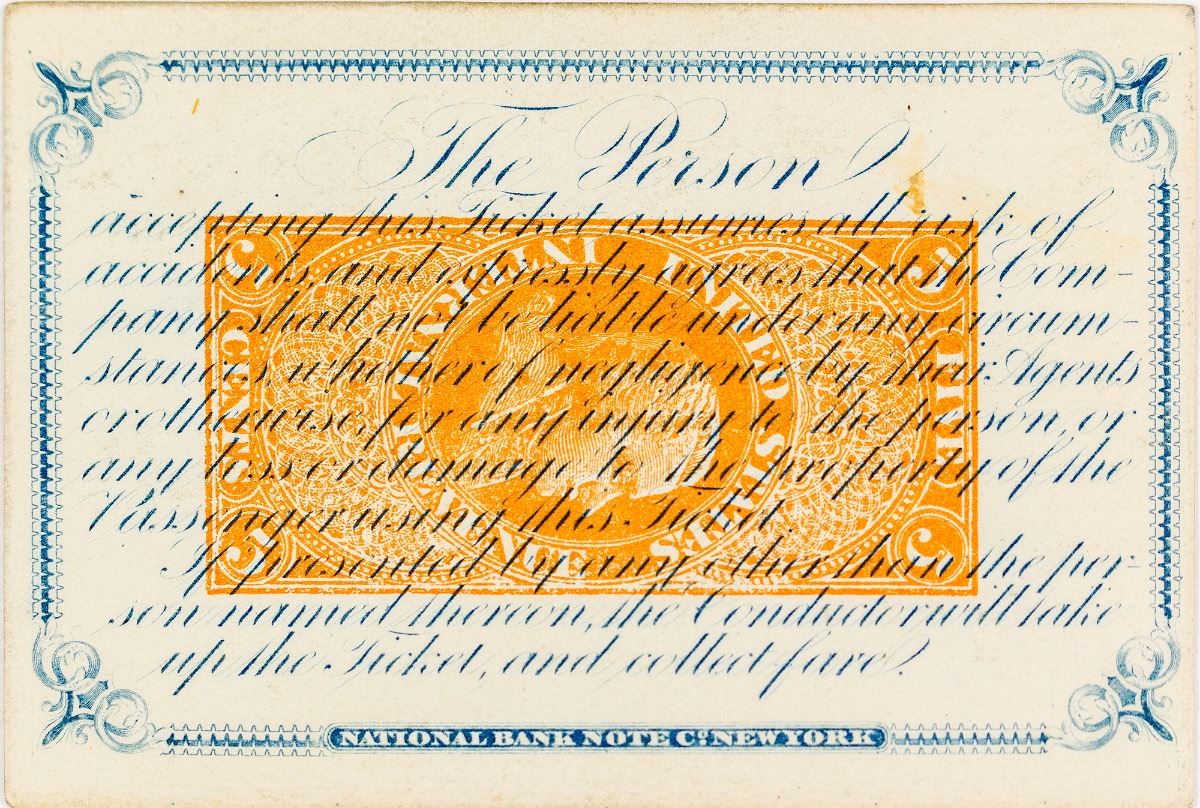 The Person
accepting this Ticket assumes all risk of
accidents, and expressly agrees that the Com-
pany shall not be liable under any circum-
stances, whether of negligence by their Agents
or otherwise, for any injury to the person, or
any loss or damage to the property of the
Passenger using this Ticket.
If presented by any other than the per-
son named thereon, the Conductor will take
up the Ticket, and collect fare.
NATIONAL BANK NOTE Co. NEW YORK
UNITED STATES
INTER. REVENUE
FIVE
CENTS
5
5
5
5